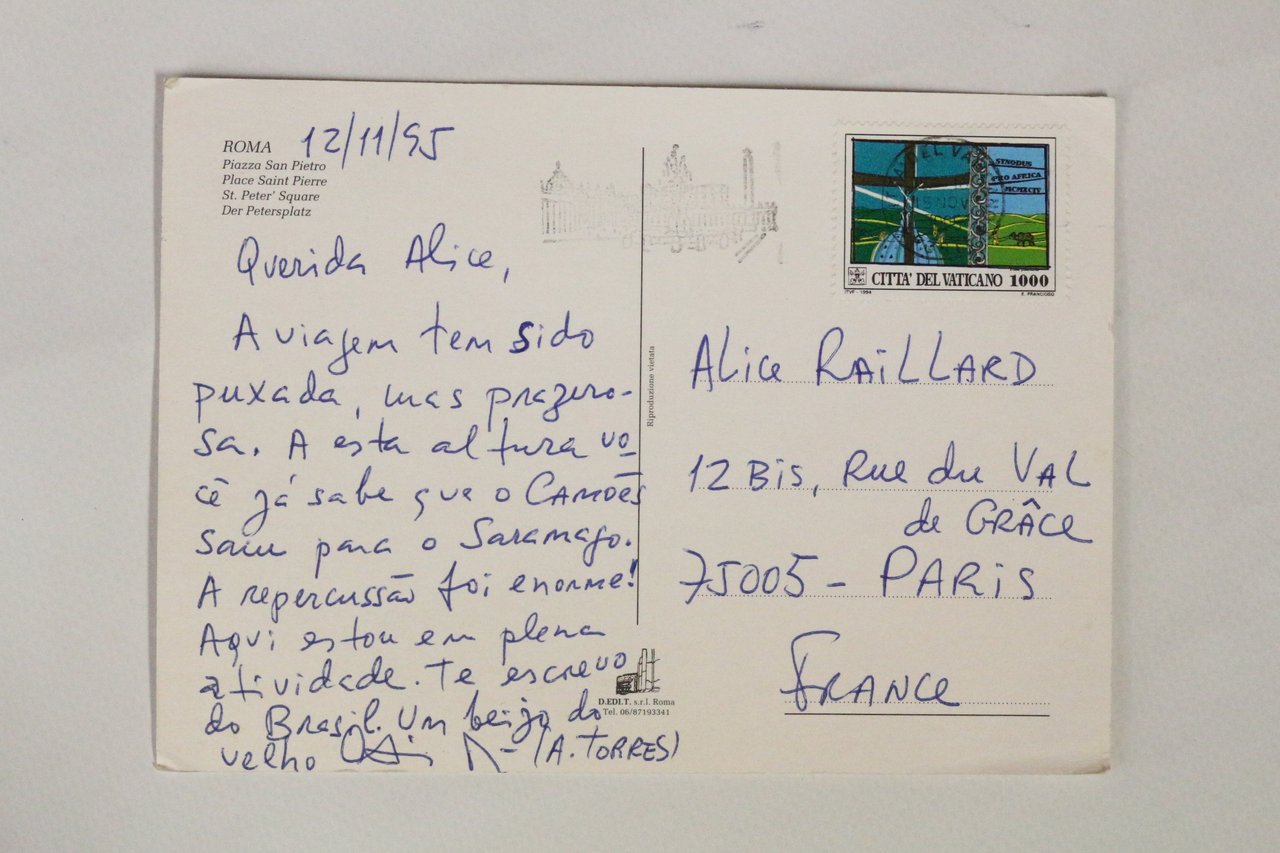 ROMA 12/11/95
Piazza San Pietro
Place Saint Pierre
St. Peter' Square
Der Petersplatz
Querida Alice,
A viagem tem sido
puxada, mas prazero-
sa. A esta altura vo-
cê já sabe que o CAMÕES
saiu para o Saramago.
A repercussão foi enorme!
Aqui estou em plena
atividade. Te escrevo
do Brasil. Um beijo do
velho (A. TORRES)
D.EDI.T. s.r.l. Roma
Tel. 06/87193341
Riproduzione vietata
SYNODUS
PRO AFRICA
MCMXCIV
CITTA' DEL VATICANO 1000
ITVF - 1994 E. FRANCIOSO
ALicE RAiLLARD
12 Bis, Rue du VAL
de GRÂCE
75005 - PARiS
FRANCE